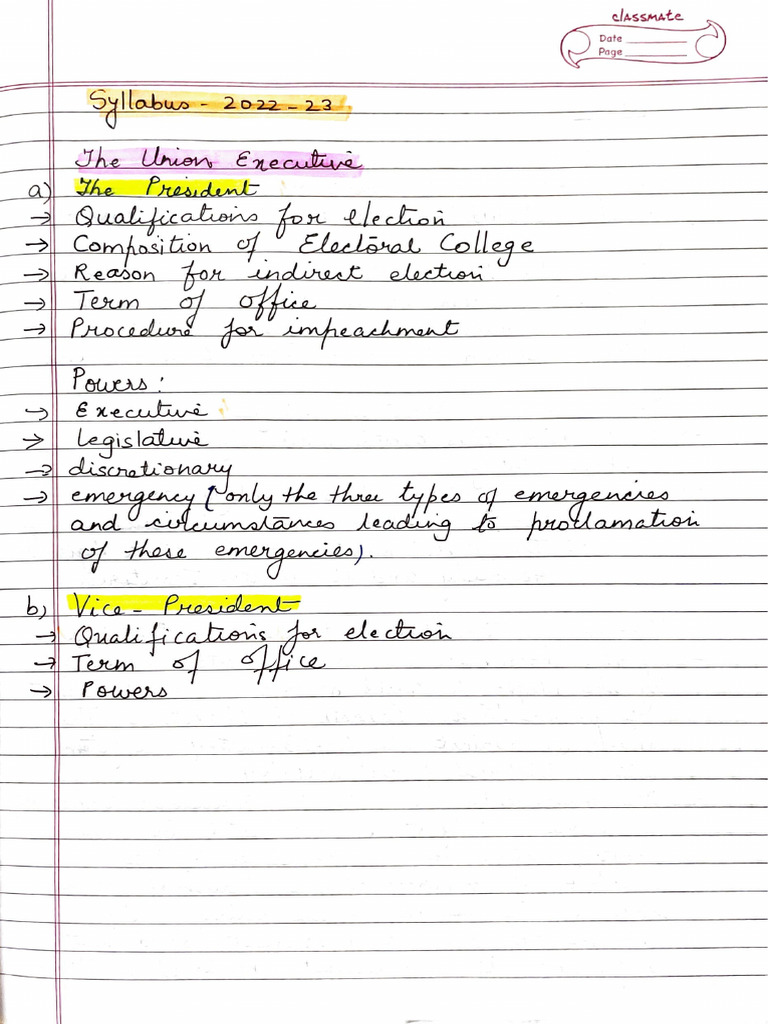 classmate
Date
Page
Syllabus - 2022-23
The Union Executive
a) The President
→ Qualifications for election
→ Composition of Electoral College
→ Reason for indirect election
→ Term of office
→ Procedure for impeachment
Powers:
→ Executive
→ legislative
→ discretionary
→ emergency (only the three types of emergencies
and circumstances leading to proclamation
of these emergencies).
b) Vice-President
→ Qualifications for election
→ Term of office
→ Powers